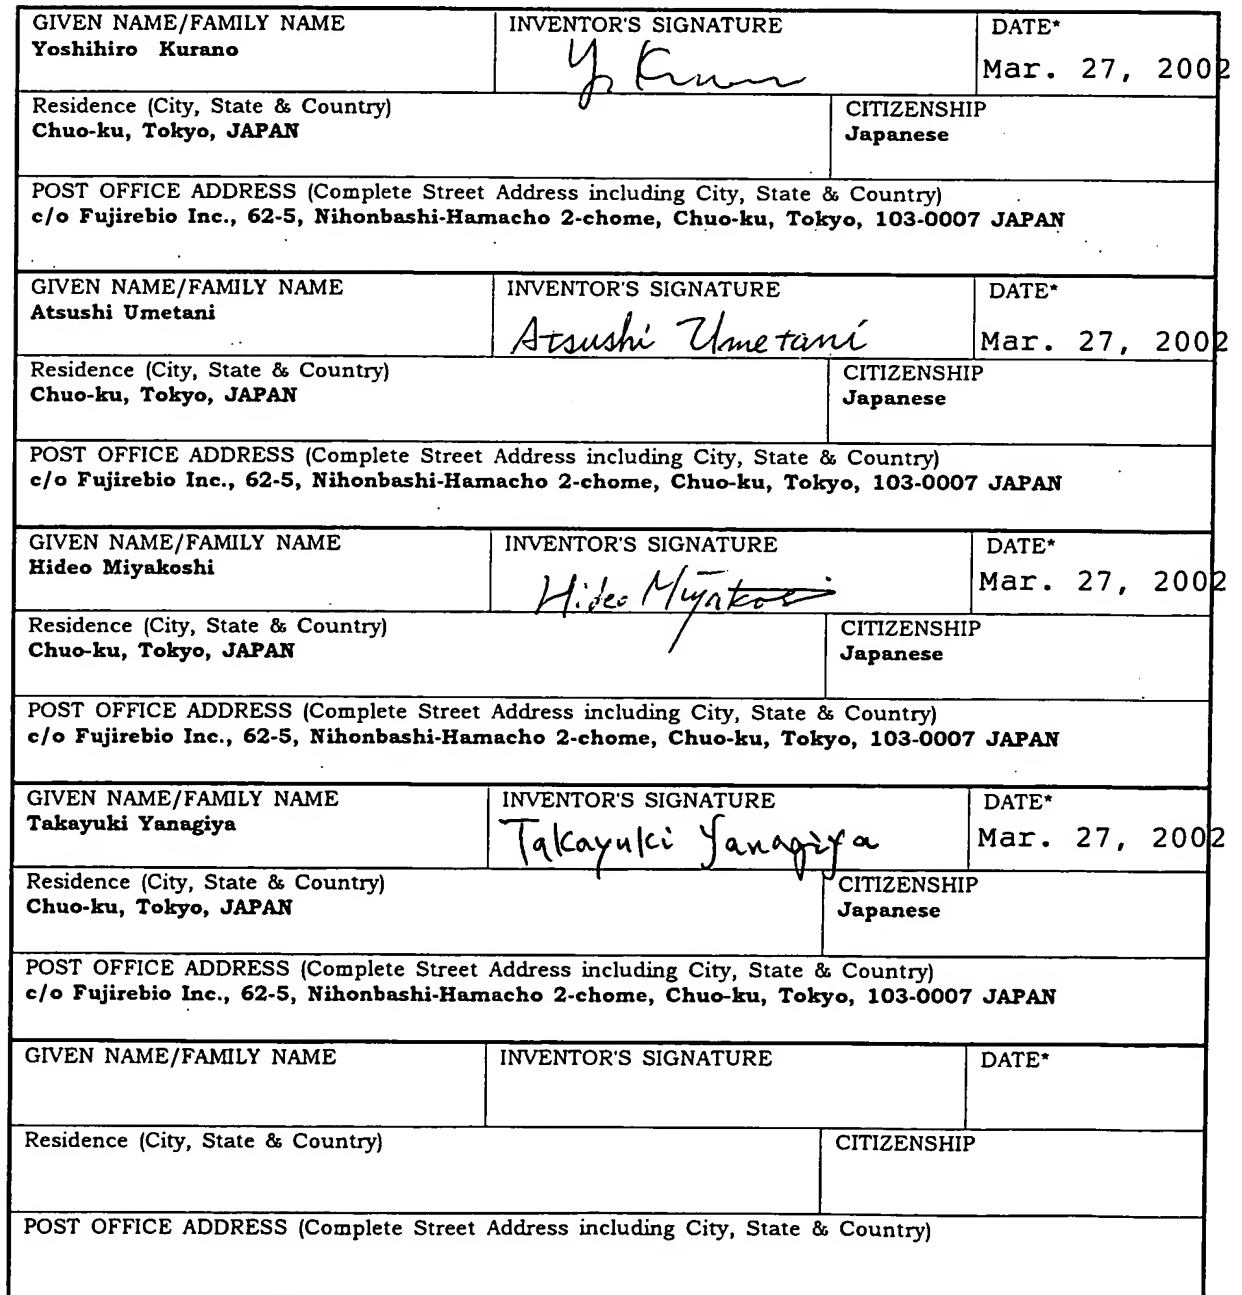 GIVEN NAME/FAMILY NAME INVENTOR'S SIGNATURE DATE*
Yoshihiro Kurano
Mar. 27, 2002
Residence (City, State & Country) CITIZENSHIP
Chuo-ku, Tokyo, JAPAN Japanese
POST OFFICE ADDRESS (Complete Street Address including City, State & Country)
c/o Fujirebio Inc., 62-5, Nihonbashi-Hamacho 2-chome, Chuo-ku, Tokyo, 103-0007 JAPAN
GIVEN NAME/FAMILY NAME INVENTOR'S SIGNATURE DATE*
Atsushi Umetani
Atsushi Umetani Mar. 27, 2002
Residence (City, State & Country) CITIZENSHIP
Chuo-ku, Tokyo, JAPAN Japanese
POST OFFICE ADDRESS (Complete Street Address including City, State & Country)
c/o Fujirebio Inc., 62-5, Nihonbashi-Hamacho 2-chome, Chuo-ku, Tokyo, 103-0007 JAPAN
GIVEN NAME/FAMILY NAME INVENTOR'S SIGNATURE DATE*
Hideo Miyakoshi
Hideo Mar. 27, 2002
Residence (City, State & Country) CITIZENSHIP
Chuo-ku, Tokyo, JAPAN Japanese
POST OFFICE ADDRESS (Complete Street Address including City, State & Country)
c/o Fujirebio Inc., 62-5, Nihonbashi-Hamacho 2-chome, Chuo-ku, Tokyo, 103-0007 JAPAN
GIVEN NAME/FAMILY NAME INVENTOR'S SIGNATURE DATE*
Takayuki Yanagiya
Takayuki Yanagiya Mar. 27, 2002
Residence (City, State & Country) CITIZENSHIP
Chuo-ku, Tokyo, JAPAN Japanese
POST OFFICE ADDRESS (Complete Street Address including City, State & Country)
c/o Fujirebio Inc., 62-5, Nihonbashi-Hamacho 2-chome, Chuo-ku, Tokyo, 103-0007 JAPAN
GIVEN NAME/FAMILY NAME INVENTOR'S SIGNATURE DATE*
Residence (City, State & Country) CITIZENSHIP
POST OFFICE ADDRESS (Complete Street Address including City, State & Country)